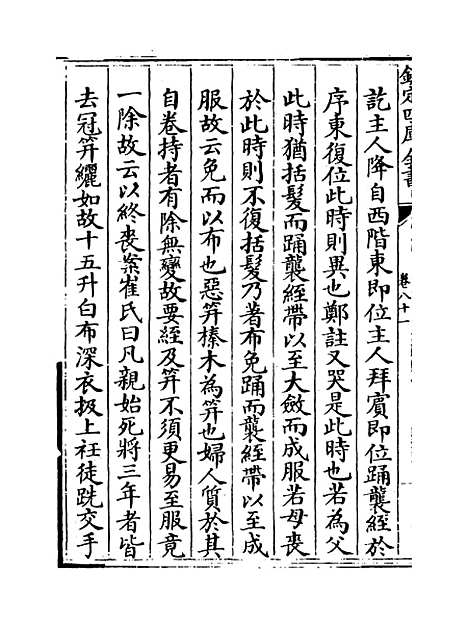 欽定四庫全書
卷八十一
訖主人降自西階東即位主人拜賓即位踊襲絰於
序東復位此時則異也鄭註又哭是此時也若為父
此時猶括髮而踊襲絰帶以至大斂而成服若母喪
於此時則不復括髮乃著布免踊而襲絰帶以至成
服故云免而以布也惡笄榛木為笄也婦人質於其
自卷持者有除無變故要絰及笄不須更易至服竟
一除故云以終喪案崔氏曰凡親始死將三年者皆
去冠笄纚如故十五升白布深衣扱上衽徒跣交手